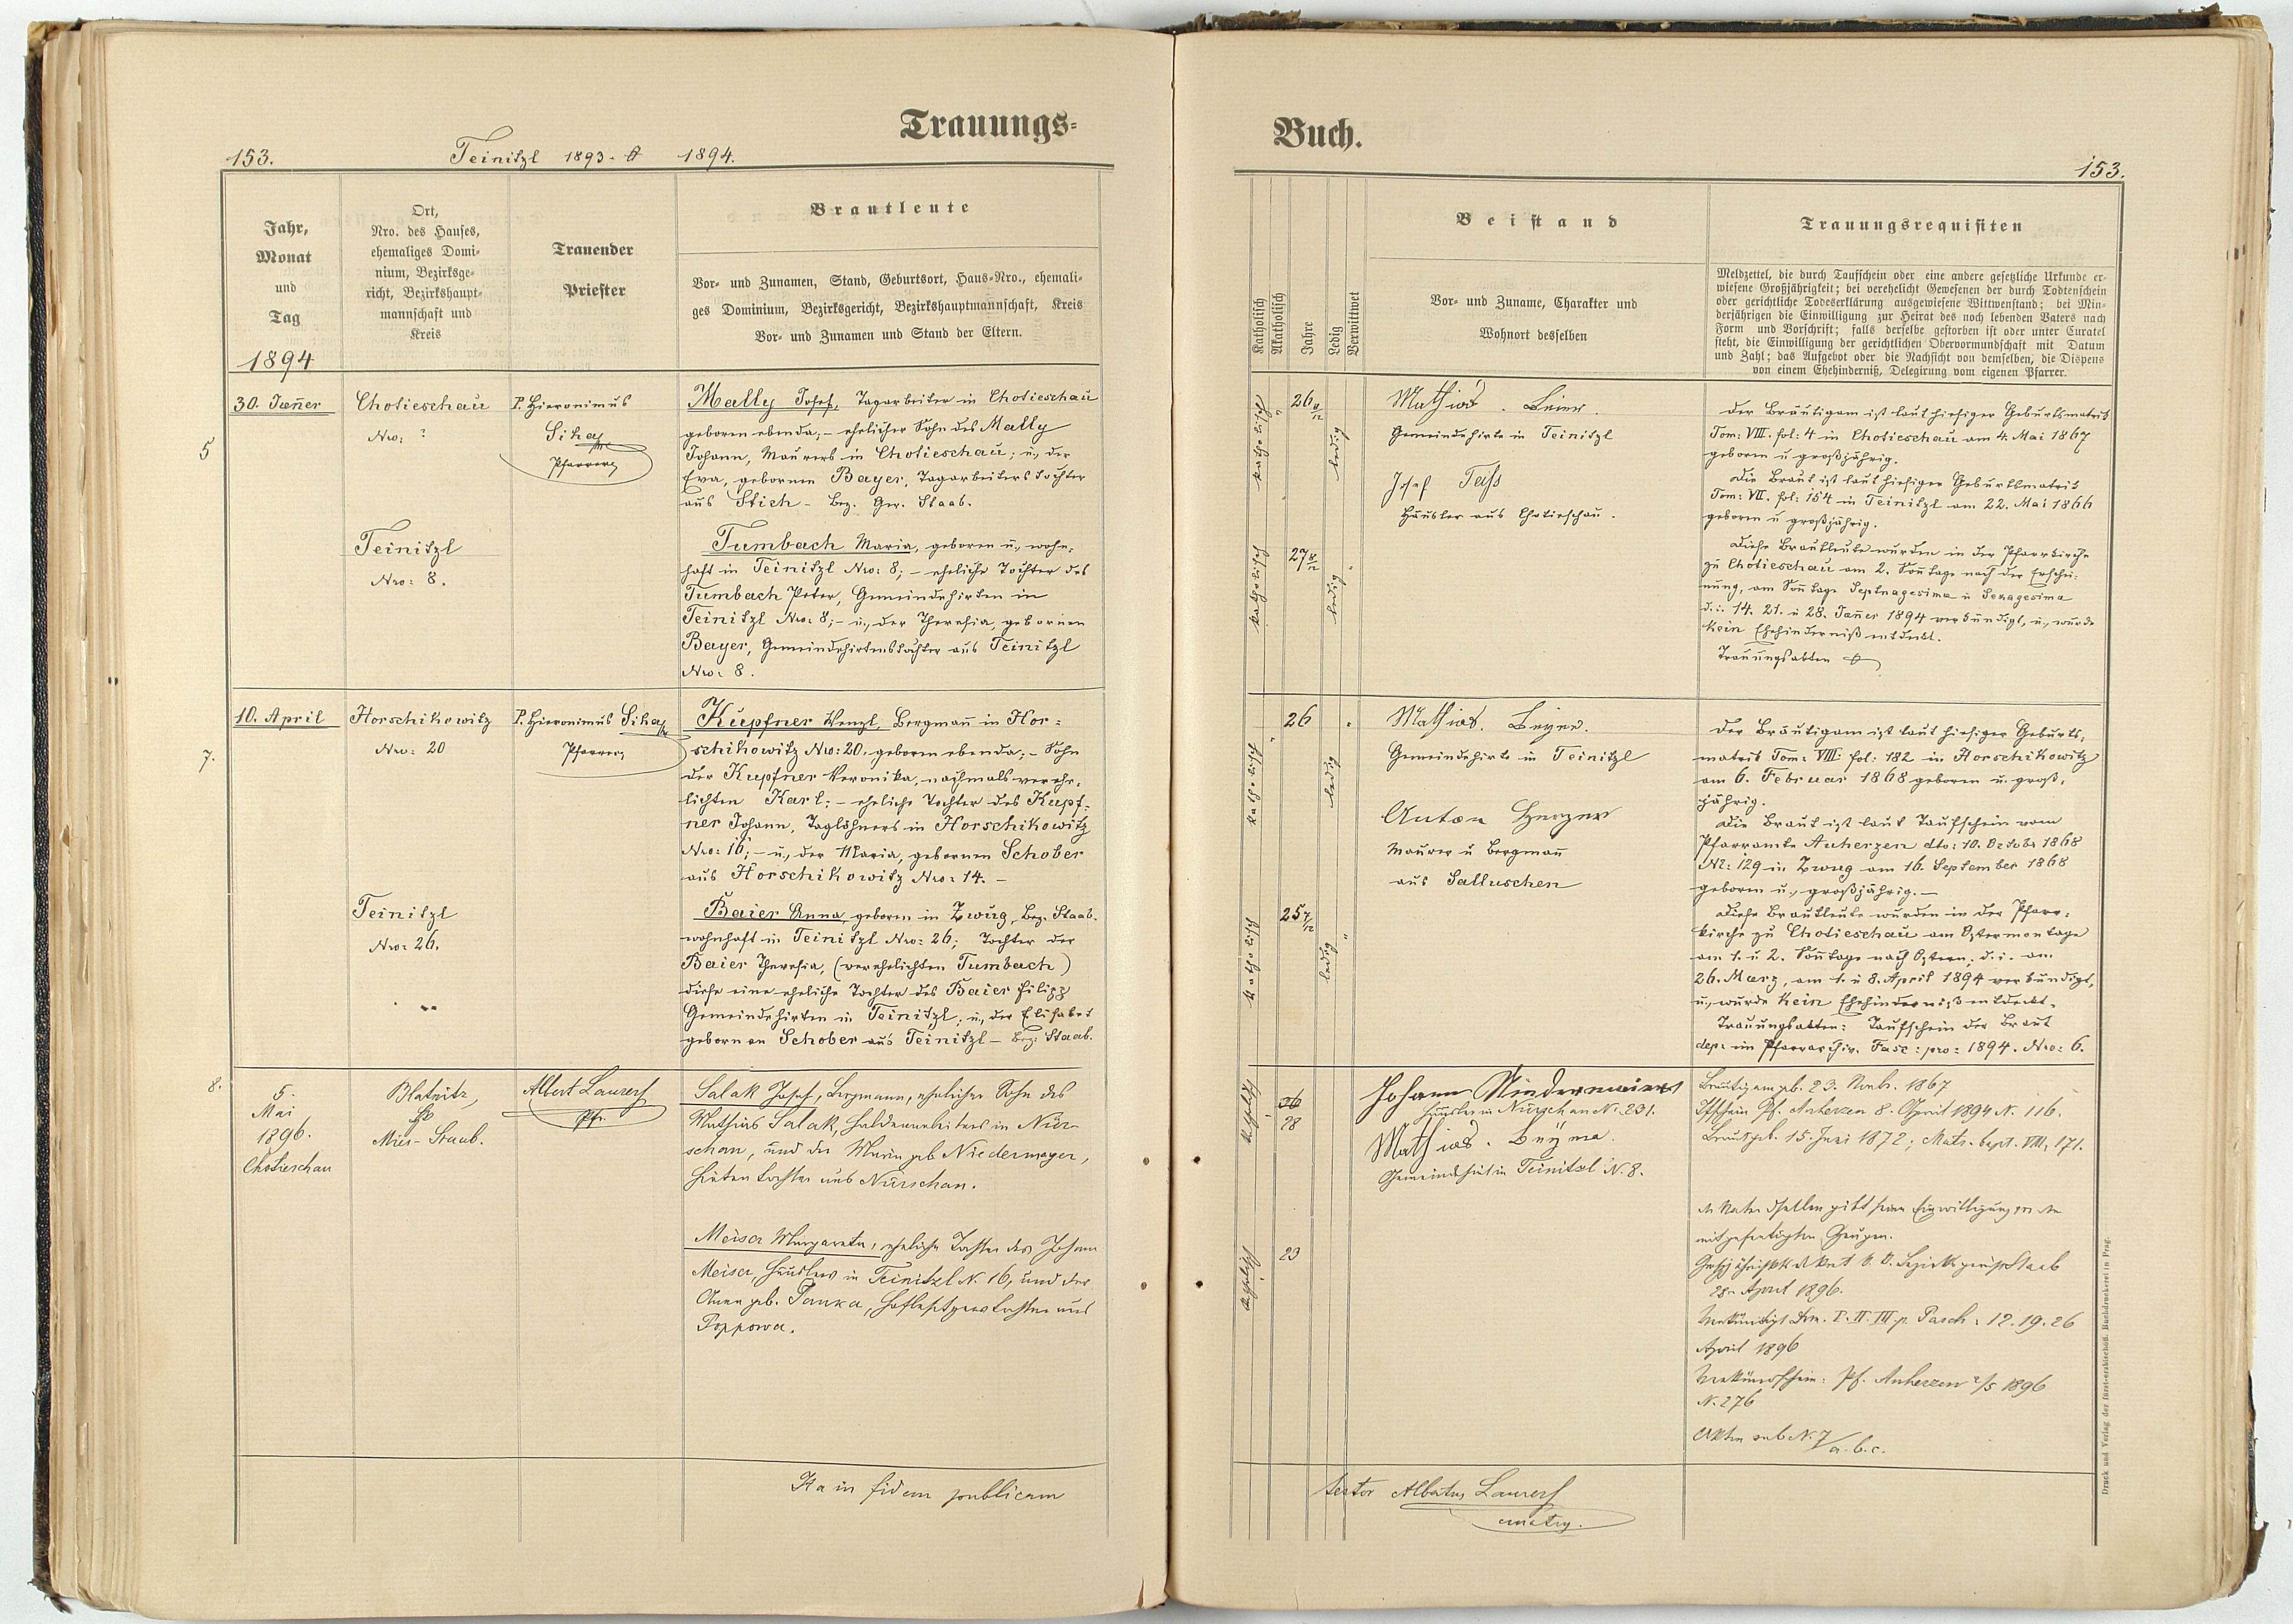 Trauungs-
153. Teinitzl 1893 - 1894.
Jahr,
Monat
und
Tag
1894
Ort,
Nro. des Hauses,
ehemaliges Domi-
nium, Bezirksge-
richt, Bezirkshaupt-
mannschaft und
Kreis
Trauender
Priester
Brautleute
Vor- und Zunamen, Stand, Geburtsort, Haus-Nro., ehemali-
ges Dominium, Bezirksgericht, Bezirkshauptmannschaft, Kreis
Vor- und Zunamen und Stand der Eltern.
5
30. Jänner
Chotieschau
Nro: ?
P. Hieronimus
Sika
Pfarrer
Mally Josef, Tagarbeiter in Chotieschau
geboren ebenda; - ehelicher Sohn des Mally
Johann, Maurers in Chotieschau; u., der
Eva, gebornen Bayer, Tagarbeiters Tochter
aus Stich - Bez. Ger. Staab.
Teinitzl
Nro: 8.
Tumbach Maria, geboren u., wohn-
haft in Teinitzl Nro: 8; - eheliche Tochter des
Tumbach Peter, Gemeindehirten in
Teinitzl Nro: 8; - u., der Theresia, gebornen
Bayer, Gemeindehirtenstochter aus Teinitzl
Nro: 8.
7.
10. April
Horschikowitz
Nro: 20
P. Hieronimus Sika
Pfarrer
Kupfner Wenzl, Bergmann in Hor-
schikowitz Nro: 20, geboren ebenda; - Sohn
der Kupfner Veronika, nachmals verehe-
lichten Karl; - eheliche Tochter des Kupf-
ner Johann, Taglöhners in Horschikowitz
Nro: 16; - u., der Maria, gebornen Schober
aus Horschikowitz Nro: 14. -
Teinitzl
Nro: 26.
Baier Anna, geboren in Zwug, Bez. Staab.
wohnhaft in Teinitzl Nro: 26; Tochter der
Baier Theresia, (verehelichten Tumbach)
diese eine eheliche Tochter des Baier Filipp
Gemeindehirten in Teinitzl; u., der Elisabet
gebornen Schober aus Teinitzl - Bez: Staab.
8.
5.
Mai
1896.
Chotieschau
Blatnitz,
Mies-Staab.
Albert Laurer
Pfr.
Salak Josef, Bergmann, ehelicher Sohn des
Mathias Salak, Haldenarbeiters in Nür-
schan, und der Maria geb. Niedermayer,
Hirten Tochter aus Nürschan.
Meiser Margareta, eheliche Tochter des Johann
Meiser, Häuslers in Teinitzl N. 16, und der
Anna geb. Panka, Tochter aus
Poppowa.
Ita in fidem publicam
Buch.
153.
Katholisch
Akatholisch
Jahre
Ledig
Verwittwet
Beistand
Vor- und Zuname, Charakter und
Wohnort desselben
Trauungsrequisiten
Meldzettel, die durch Taufschein oder eine andere gesetzliche Urkunde er-
wiesene Großjährigkeit; bei verehelicht Gewesenen der durch Todtenschein
oder gerichtliche Todeserklärung ausgewiesene Wittwenstand; bei Min-
derjährigen die Einwilligung zur Heirat des noch lebenden Vaters nach
Form und Vorschrift; falls derselbe gestorben ist oder unter Curatel
steht, die Einwilligung der gerichtlichen Obervormundschaft mit Datum
und Zahl; das Aufgebot oder die Nachsicht von demselben, die Dispens
von einem Ehehinderniß, Delegirung vom eigenen Pfarrer.
katholisch
26 8/12
ledig
Mathias. Beier.
Gemeindehirte in Teinitzl
Josef Tass
Häusler aus Chotieschau.
katholisch
27 8/12
ledig
Der Bräutigam ist laut hiesiger Geburtsmatrik
Tom: VIII. fol: 4 in Chotieschau am 4. Mai 1867
geboren u großjährig.
Die Braut ist laut hiesiger Geburtsmatrik
Tom: VII. fol: 154 in Teinitzl am 22. Mai 1866
geboren u großjährig.
Diese Brautleute wurden in der Pfarrkirche
zu Chotieschau am 2. Sonntage nach der Erschei-
nung, am Sonntage Septuagesima u Sexagesima
d. i. 14. 21. u 28. Jänner 1894 verkündigt, u., wurde
kein Ehehinderniß entdeckt.
Trauungsakten
katholisch
26
ledig
Mathias. Beyer.
Gemeindehirte in Teinitzl
Anton Herzer
Maurer u Bergmann
aus Salluschen
katholisch
25 7/12
ledig
Der Bräutigam ist laut hiesiger Geburts-
matrik Tom: VIII fol: 182 in Horschikowitz
am 6. Februar 1868 geboren u. groß-
jährig.
Die Braut ist laut Taufschein vom
Pfarramte Auherzen dto: 10. Octobr 1868
Nr: 129 in Zwug am 16. September 1868
geboren u., großjährig. -
Diese Brautleute wurden in der Pfarr-
kirche zu Chotieschau am Ostermontage
am 1. u 2. Sonntage nach Ostern; d. i. am
26. März, am 1. u 8. April 1894 verkündigt,
u., wurde kein Ehehinderniß entdeckt.
Trauungsakten: Taufschein der Braut
dep: im Pfarrarchiv. Fasc: pro: 1894. Nro: 6.
katholisch
26
28
Johann Niedermeier
Häusler in Nürschan N. 231.
Mathias. Beyer.
Gemeindehirt in Teinitzl N. 8.
katholisch
23
Bräutigam geb. 23. Novb. 1867
Tfschein Pf. Auherzen 8. April 1894 N. 116.
Braut geb. 15. Juni 1872; Matr. bapt. VIII, 171.
Vater derselben gibt seine Einwilligung vor den
mitgefertigten Zeugen.
k. k. Bezirksgericht Staab
28. April 1896.
Verkündigt Dom. I. II. III. p. Pasch: 12. 19. 26
April 1896
Verkündschein: Pf. Auherzen 2/5 1896
N. 276
Akten sub N. 7/a. b. c.
Albertus Laurer
Druck und Verlag der fürst-erzbischöfl. Buchdruckerei in Prag.